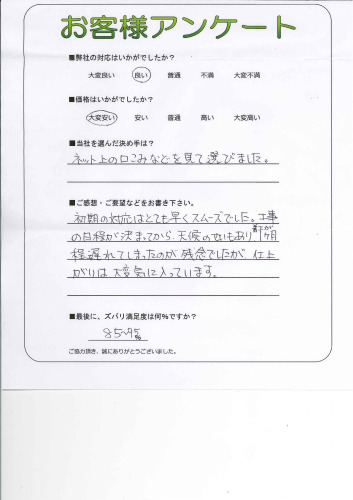 お客様アンケート
■弊社の対応はいかがでしたか？
大変良い 良い 普通 不満 大変不満
■価格はいかがでしたか？
大変安い 安い 普通 高い 大変高い
■当社を選んだ決め手は？
ネット上の口コミなどを見て選びました。
■ご感想・ご要望などをお書き下さい。
初期の対応はとても早くスムーズでした。工事
の日程が決まってから、天候のせいもあり、1ヶ月
程遅れてしまったのが残念でしたが、仕上
がりは大変気に入っています。
■最後に、ズバリ満足度は何%ですか？
85~95%
ご協力頂き、誠にありがとうございました。